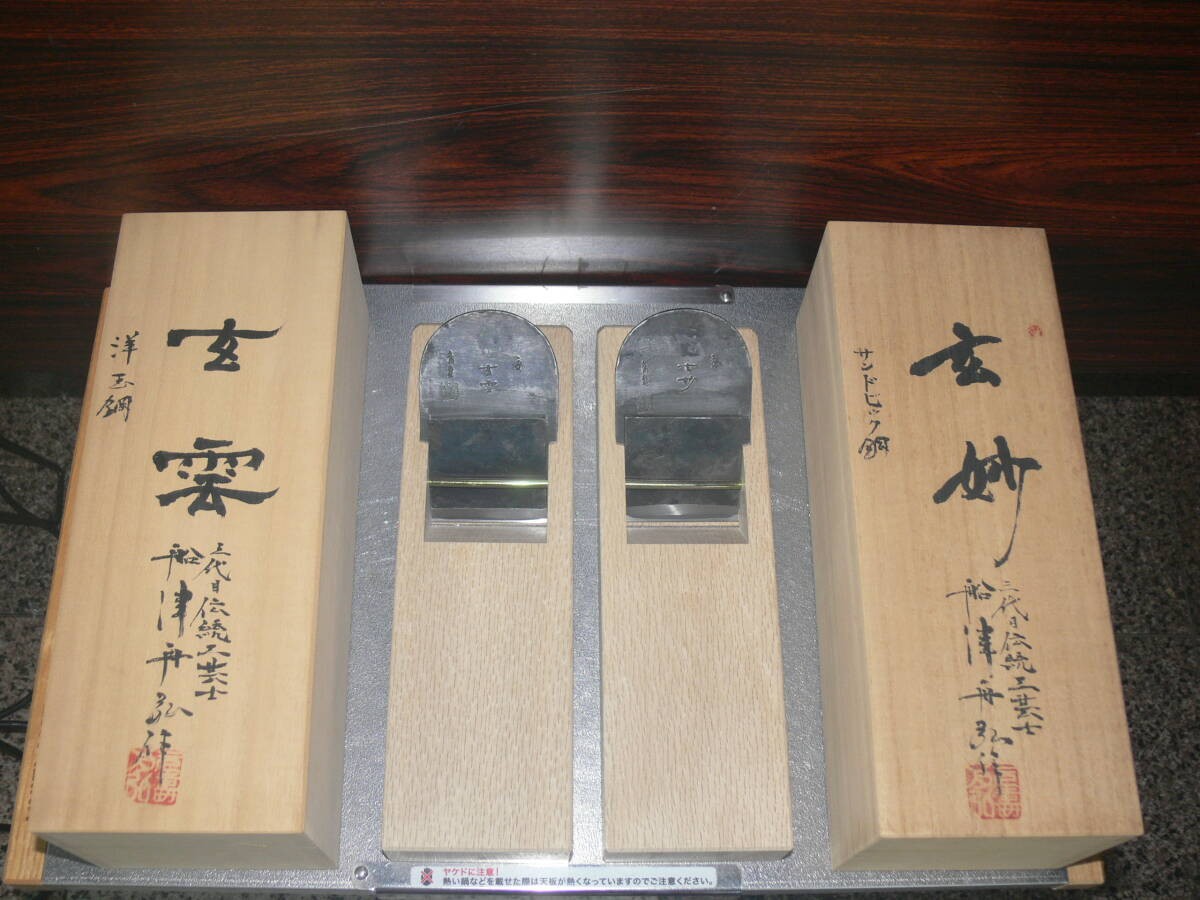 玄雲
洋玉鋼
三代目伝統工芸士
船津舟弘作
玄雲
玄妙
玄妙
サンドビック鋼
三代目伝統工芸士
船津舟弘作
ヤケドに注意!
熱い鍋などを載せた際は天板が熱くなっていますのでご注意ください。